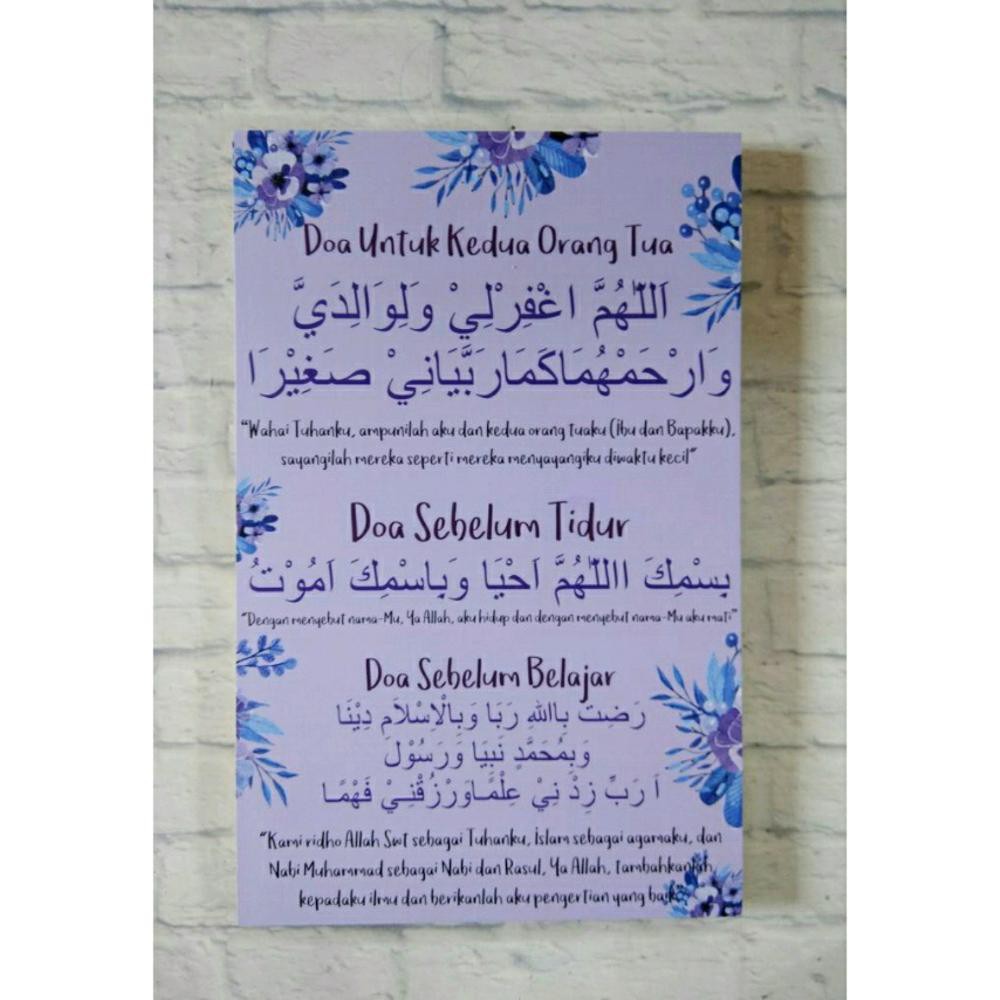 Doa Untuk Kedua Orang Tua
اَللّٰهُمَّ اغْفِرْلِيْ وَلِوَالِدَيَّ
وَارْحَمْهُمَاكَمَارَبَّيَانِيْ صَغِيْرَا
"Wahai Tuhanku, ampunilah aku dan kedua orang tuaku (Ibu dan Bapakku),
sayangilah mereka seperti mereka menyayangiku diwaktu kecil"
Doa Sebelum Tidur
بِسْمِكَ االلّٰهُمَّ اَحْيَا وَبِاسْمِكَ اَمُوْتُ
"Dengan menyebut nama-Mu, Ya Allah, aku hidup dan dengan menyebut nama-Mu aku mati"
Doa Sebelum Belajar
رَضِتُ بِااللهِ رَبَا وَبِالْاِسْلَامِ دِيْنَا
وَبِمُحَمَّدٍ نَبِيَا وَرَسُوْلَ
اَ رَبِّ زِدْ نِيْ عِلْمًاوَرْزُقْنِيْ فَهْمًا
"Kami ridho Allah Swt sebagai Tuhanku, Islam sebagai agamaku, dan
Nabi Muhammad sebagai Nabi dan Rasul, Ya Allah, tambahkanlah
kepadaku ilmu dan berikanlah aku pengertian yang baik"